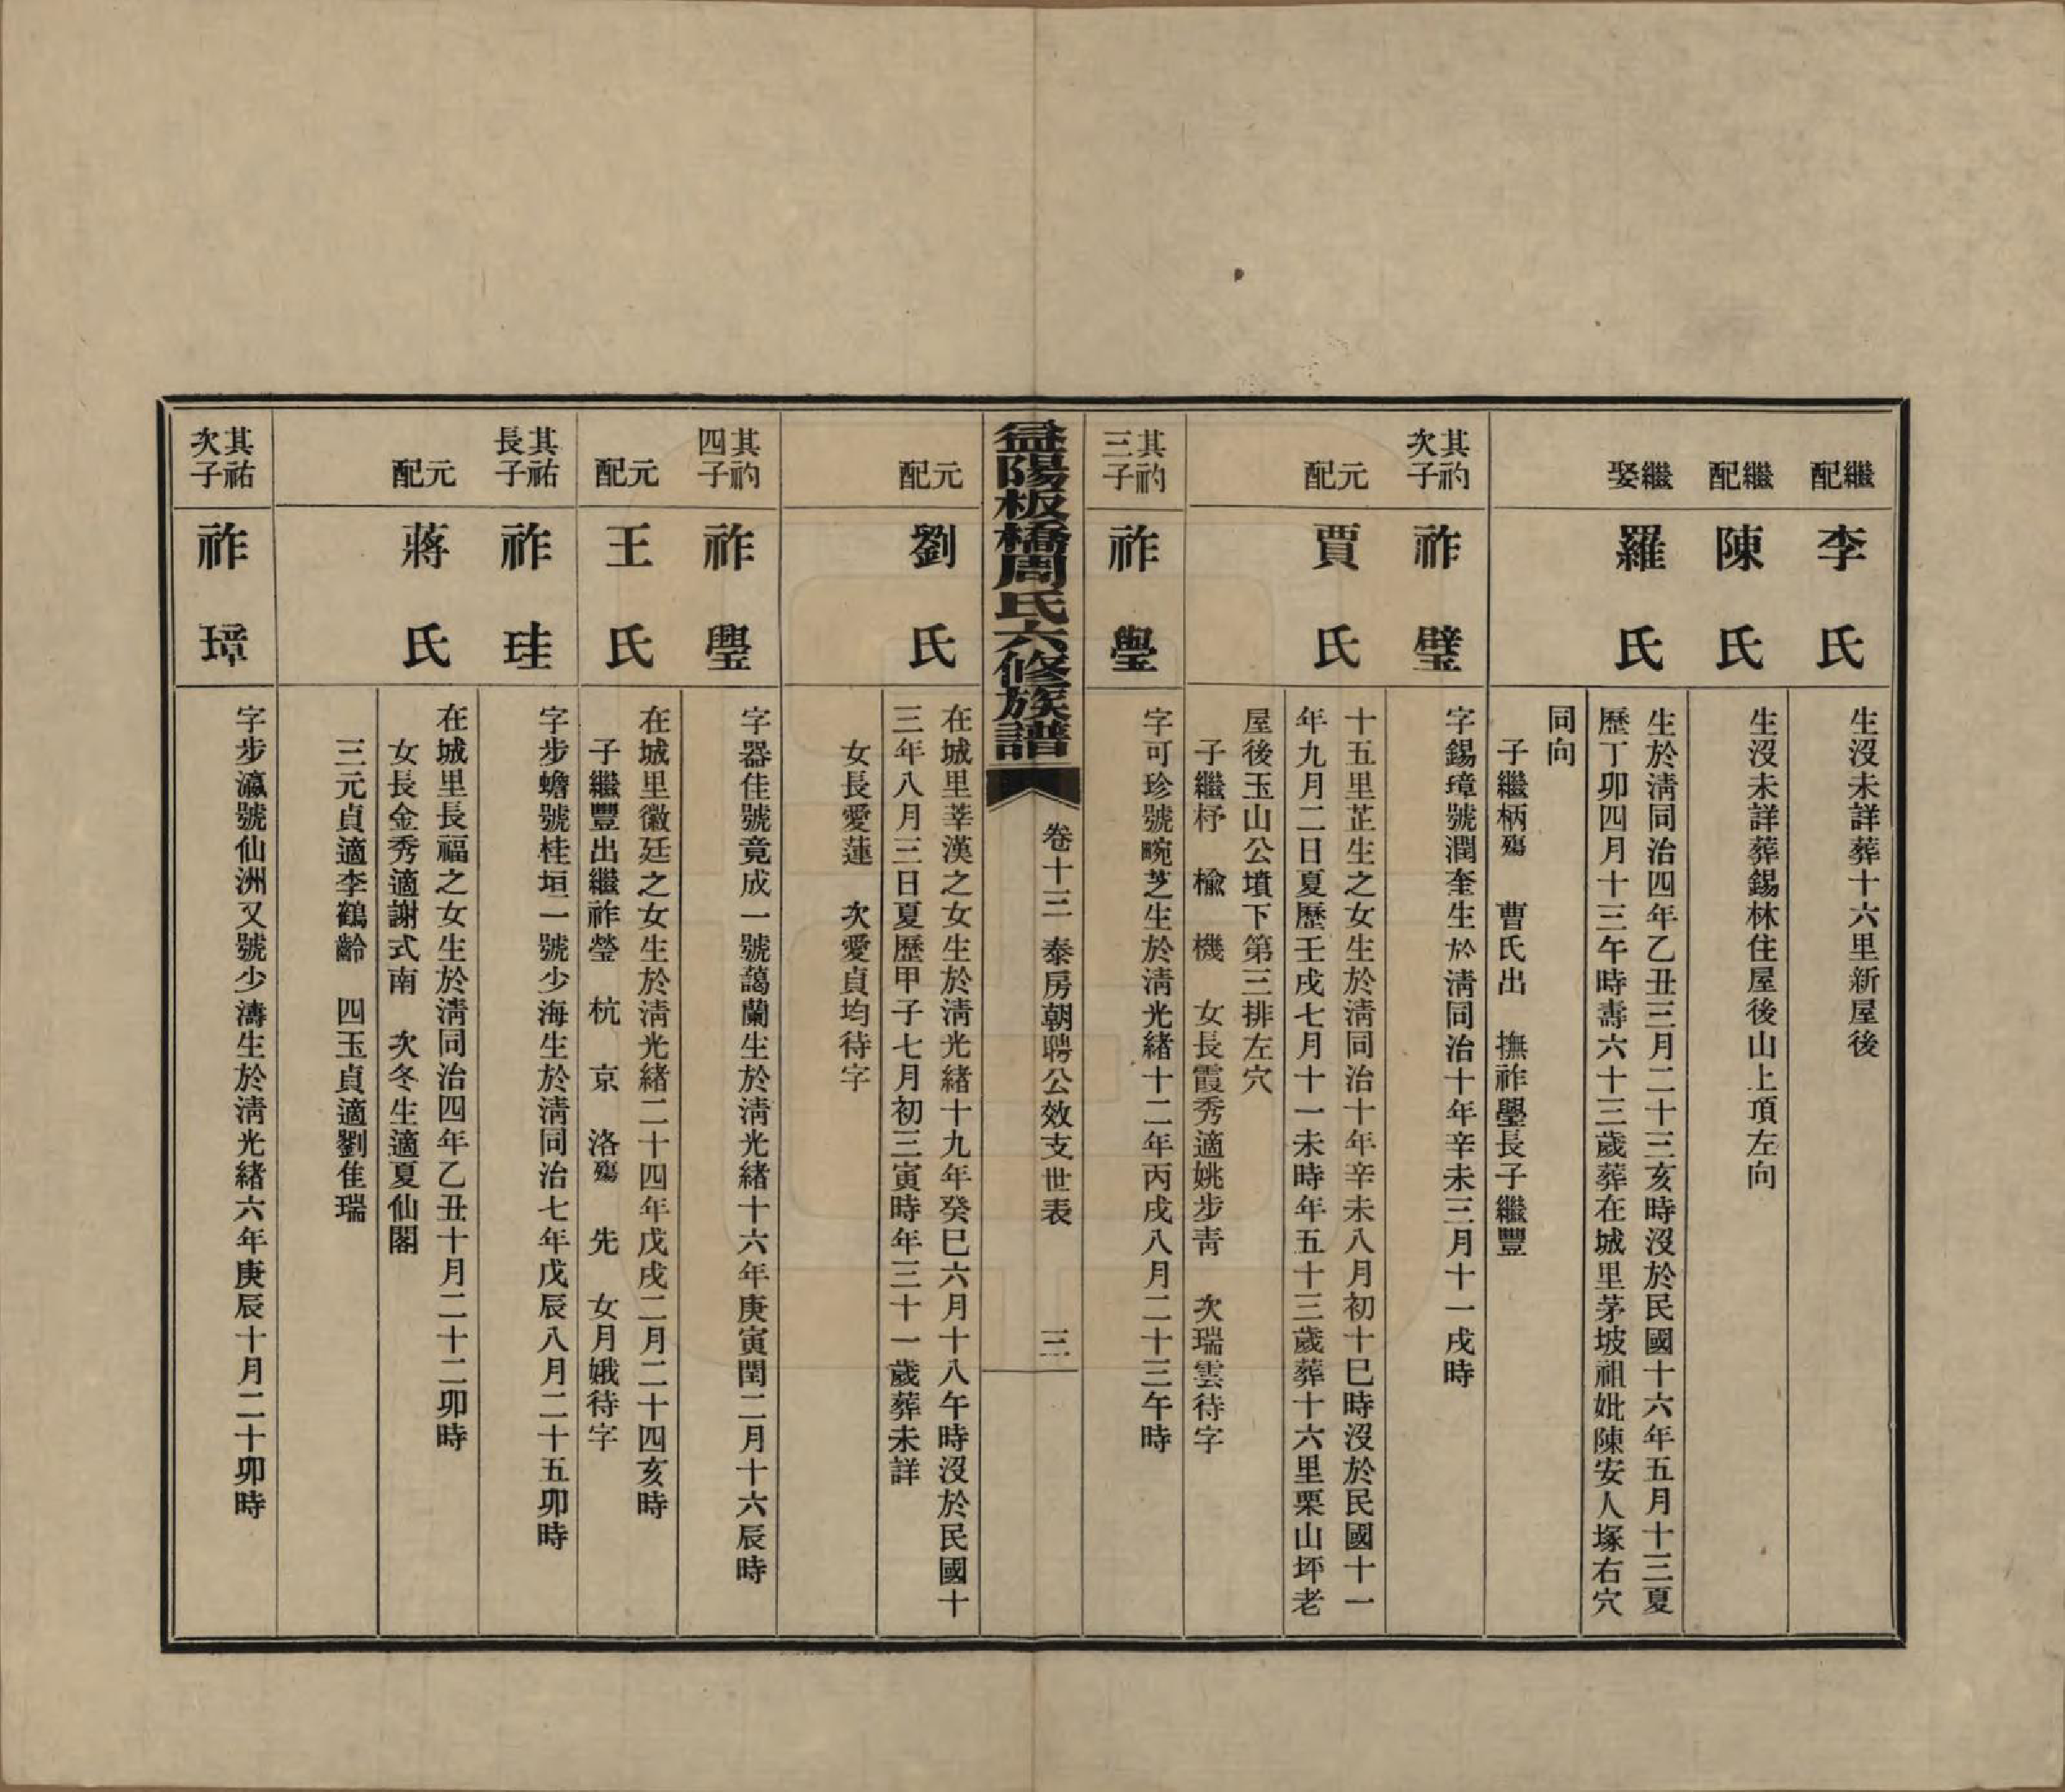 繼配
李氏
生沒未詳葬十六里新屋後
繼配
陳氏
生沒未詳葬錫林住屋後山上頂左向
繼娶
羅氏
生於淸同治四年乙丑三月二十三亥時沒於民國十六年五月十三夏
歷丁卯四月十三午時壽六十三歲葬在城里茅坡祖妣陳安人塚右穴
同向
子繼柄殤　曹氏出　撫祚壆長子繼豐
其礿次子
祚璧
字錫璋號潤奎生於淸同治十年辛未三月十一戌時
元配
賈氏
十五里芷生之女生於淸同治十年辛未八月初十巳時沒於民國十一
年九月二日夏歷壬戌七月十一未時年五十三歲葬十六里栗山坪老
屋後玉山公墳下第三排左穴
子繼杼　楡　機　女長霞秀適姚步靑　次瑞雲待字
其礿三子
祚
字可珍號畹芝生於淸光緒十二年丙戌八月二十三午時
益陽板橋周氏六修族譜
卷十三　泰房朝聘公效支世表
三
元配
劉氏
在城里莘漢之女生於淸光緒十九年癸巳六月十八午時沒於民國十
三年八月三日夏歷甲子七月初三寅時年三十一歲葬未詳
女長愛蓮　次愛貞均待字
其礿四子
祚
字器佳號竟成一號藹蘭生於淸光緒十六年庚寅閏二月十六辰時
元配
王氏
在城里徽廷之女生於淸光緒二十四年戊戌二月二十四亥時
子繼豐出繼祚瑩　杭　京　洛殤　先　女月娥待字
其祐長子
祚珪
字步蟾號桂垣一號少海生於淸同治七年戊辰八月二十五卯時
元配
蔣氏
在城里長福之女生於淸同治四年乙丑十月二十二卯時
女長金秀適謝式南　次冬生適夏仙閣
三元貞適李鶴齡　四玉貞適劉隹瑞
其祐次子
祚璋
字步瀛號仙洲又號少濤生於淸光緒六年庚辰十月二十卯時